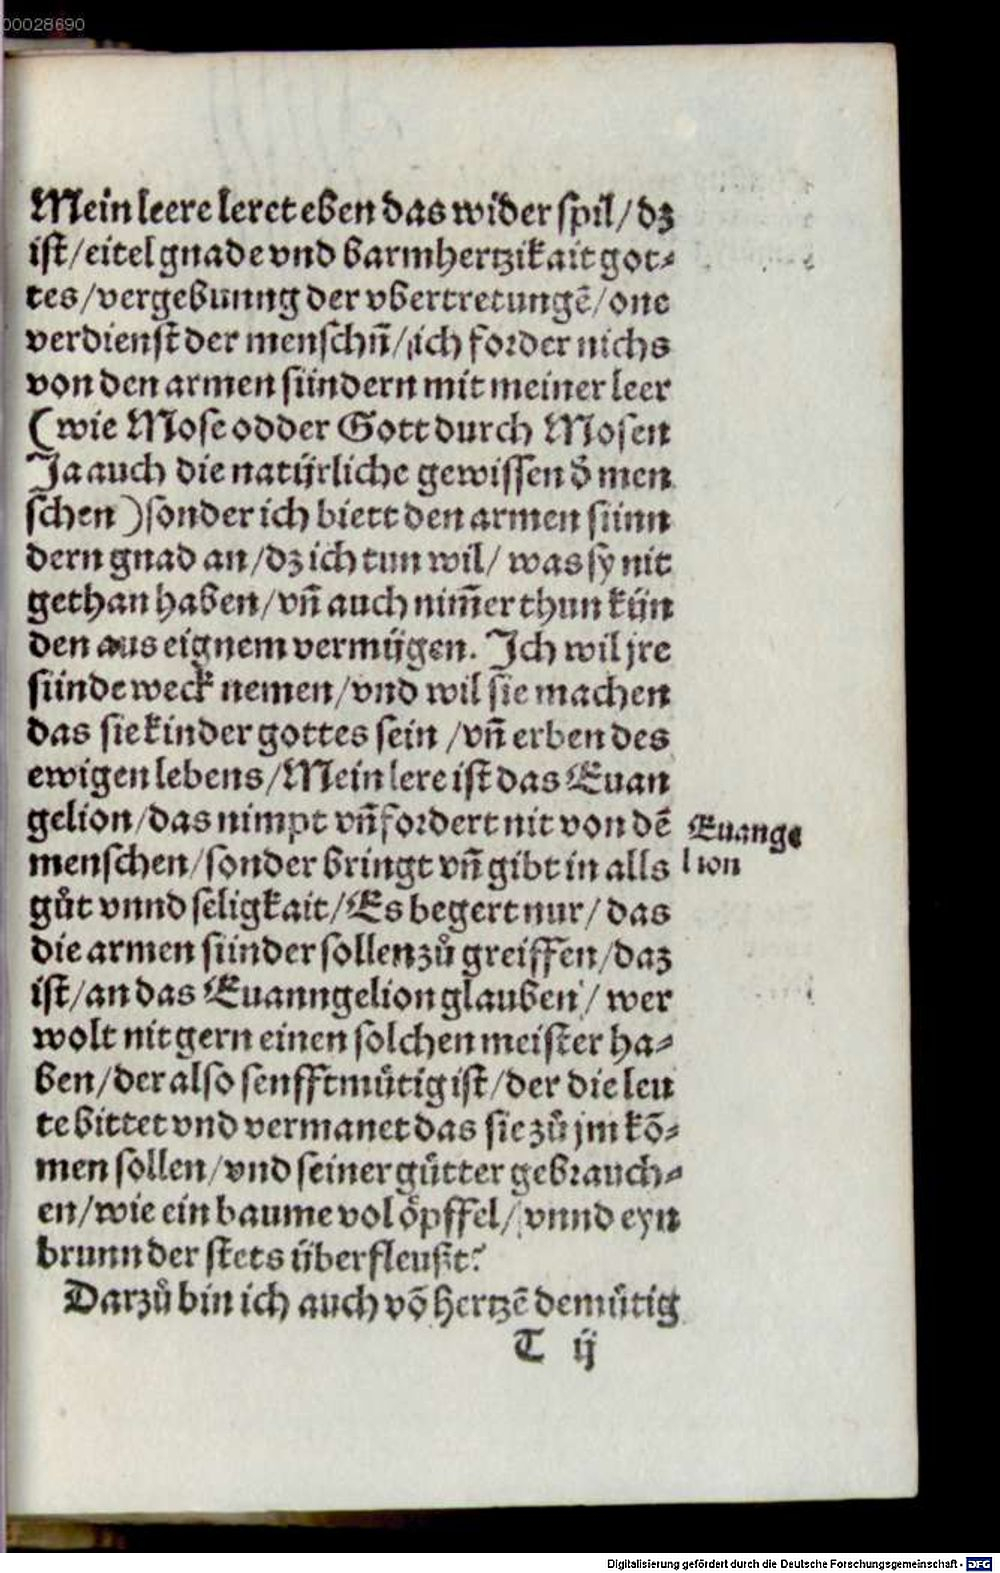 00028690
Mein leere leret eben das wider spil / dz
ist / eitel gnade vnd barmhertzikait got⸗
tes / vergebunng der vbertretungē / one
verdienst der menschn̄ / ich forder nichs
von den armen sündern mit meiner leer
( wie Mose odder Gott durch Mosen
Ja auch die natÿrliche gewissen d̄ men
schen ) sonder ich biett den armen sünn
dern gnad an / dz ich tun wil / was sy nit
gethan haben / vn̄ auch nim̄er thun kün
den aus eignem vermÿgen. Ich wil jre
sünde weck nemen / vnd wil sie machen
das sie kinder gottes sein / vn̄ erben des
ewigen lebens / Mein lere ist das Euan
gelion / das nimpt vn̄ fordert nit von dē
menschen / sonder bringt vn̄ gibt in alls
gůt vnnd seligkait / Es begert nur / das
die armen sünder sollen zů greiffen / daz
ist / an das Euanngelion glauben / wer
wolt nit gern einen solchen meister ha⸗
ben / der also senfftmütig ist / der die leu
te bittet vnd vermanet das sie zů jm kō⸗
men sollen / vnd seiner gütter gebrauch⸗
en / wie ein baume vol öpffel / vnnd eyn
brunn der stets überfleußt?
Darzů bin ich auch vō hertzē demütig
T ij
Euange
lion
Digitalisierung gefördert durch die Deutsche Forschungsgemeinschaft - DFG